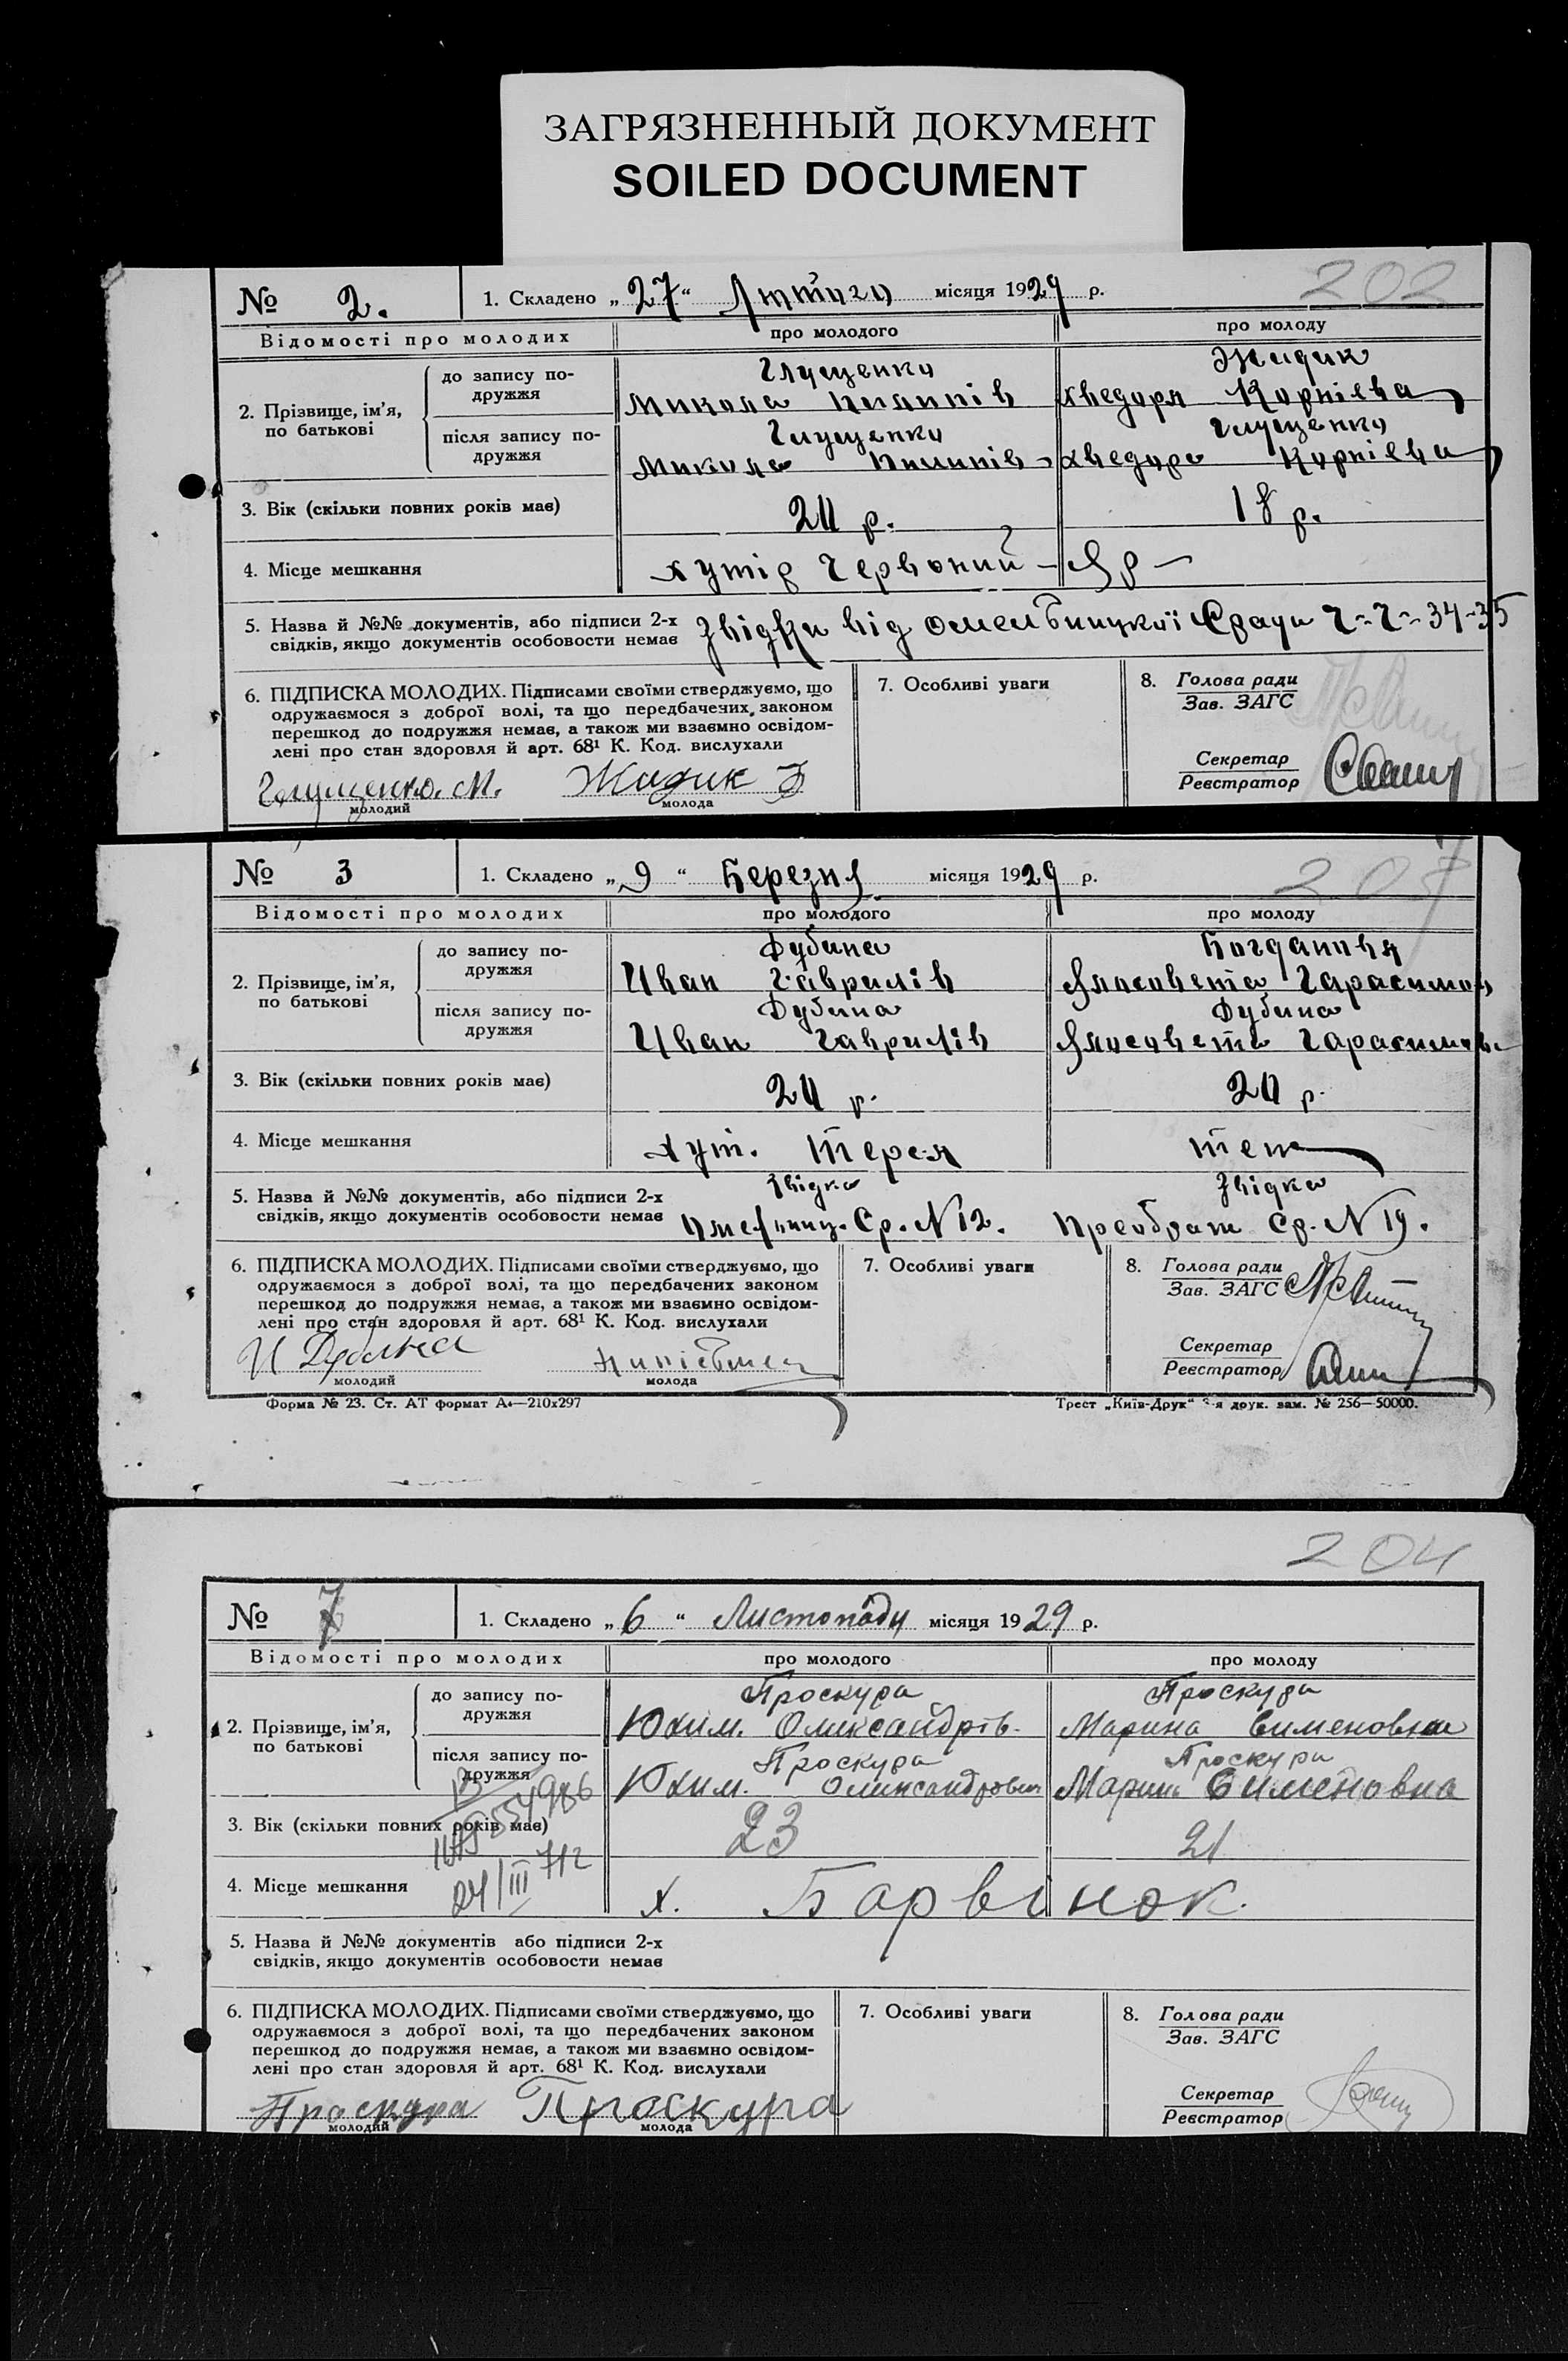 ЗАГРЯЗНЕННЫЙ ДОКУМЕНТ
SOILED DOCUMENT
202
№ 2. 1. Складено „27“ Лютого місяця 1929 р.
Відомості про молодих про молодого про молоду
2. Прізвище, ім’я, по батькові
до запису подружжя
Глущенко
Микола Пилипів
Жидик
Хведора Корнієва
після запису подружжя
Глущенко
Микола Пилипів
Глущенко
Хведора Корнієва
3. Вік (скільки повних років має) 20 р. 18 р.
4. Місце мешкання хутір Червоний - Яр -
5. Назва й №№ документів, або підписи 2-х
свідків, якщо документів особовости немає
від Омельницької 34-35
6. ПІДПИСКА МОЛОДИХ. Підписами своїми стверджуємо, що
одружаємося з доброї волі, та що передбачених законом
перешкод до подружжя немає, а також ми взаємно освідом-
лені про стан здоровля й арт. 68¹ К. Код. вислухали
Глущенко. М. Жидик
молодий молода
7. Особливі уваги
8. Голова ради
Зав. ЗАГС
Секретар
Реєстратор
207
№ 3 1. Складено „9“ Березня місяця 1929 р.
Відомості про молодих про молодого про молоду
2. Прізвище, ім’я,
по батькові
до запису по-
дружжя
Дубина
Иван Гаврилів
Богданова
Гарасимов
після запису по-
дружжя
Дубина
Иван Гаврилів
Дубина
Гарасимов
3. Вік (скільки повних років має) 20 р. 20 р.
4. Місце мешкання хут. теж
5. Назва й №№ документів, або підписи 2-х
свідків, якщо документів особовости немає
Звідка Звідка
Ср. N 12. Преображ Ср. N 19.
6. ПІДПИСКА МОЛОДИХ. Підписами своїми стверджуємо, що
одружаємося з доброї волі, та що передбачених законом
перешкод до подружжя немає, а також ми взаємно освідом-
лені про стан здоровля й арт. 68¹ К. Код. вислухали
И Дубина
молодий молода
7. Особливі уваги
8. Голова ради
Зав. ЗАГС
Секретар
Реєстратор
Форма № 23. Ст. АТ формат А₄—210х297 Трест „Київ-Друк“ 3-я друк. зам. № 256—50000.
204
№ 7 1. Складено „6“ Листопаду місяця 1929 р.
Відомості про молодих про молодого про молоду
2. Прізвище, ім’я,
по батькові
до запису по-
дружжя
Проскура
Юхим. Олександрів
Проскура
Марина Сименовна
після запису по-
дружжя
Проскура
Юхим. Олександрович
Проскура
Марина Сименовна
3. Вік (скільки повних років має) 23 21
24/III 712
4. Місце мешкання х. Барвінок.
5. Назва й №№ документів або підписи 2-х
свідків, якщо документів особовости немає
6. ПІДПИСКА МОЛОДИХ. Підписами своїми стверджуємо, що
одружаємося з доброї волі, та що передбачених законом
перешкод до подружжя немає, а також ми взаємно освідом-
лені про стан здоровля й арт. 68¹ К. Код. вислухали
Проскура Проскура
молодий молода
7. Особливі уваги
8. Голова ради
Зав. ЗАГС
Секретар
Реєстратор